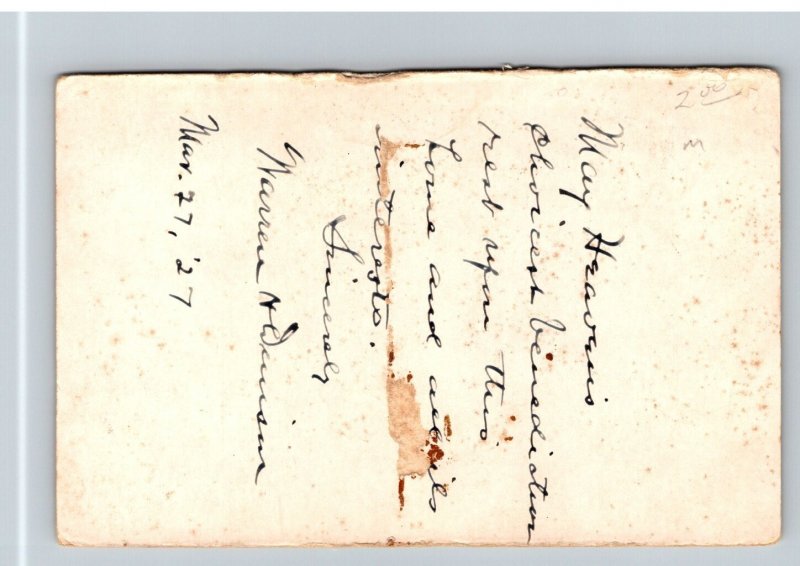 May Heaven's
choicest benediction
rest upon this
home and all its
interests.
Sincerely
Warren H Denison
Mar. 27, '27
2 00
m